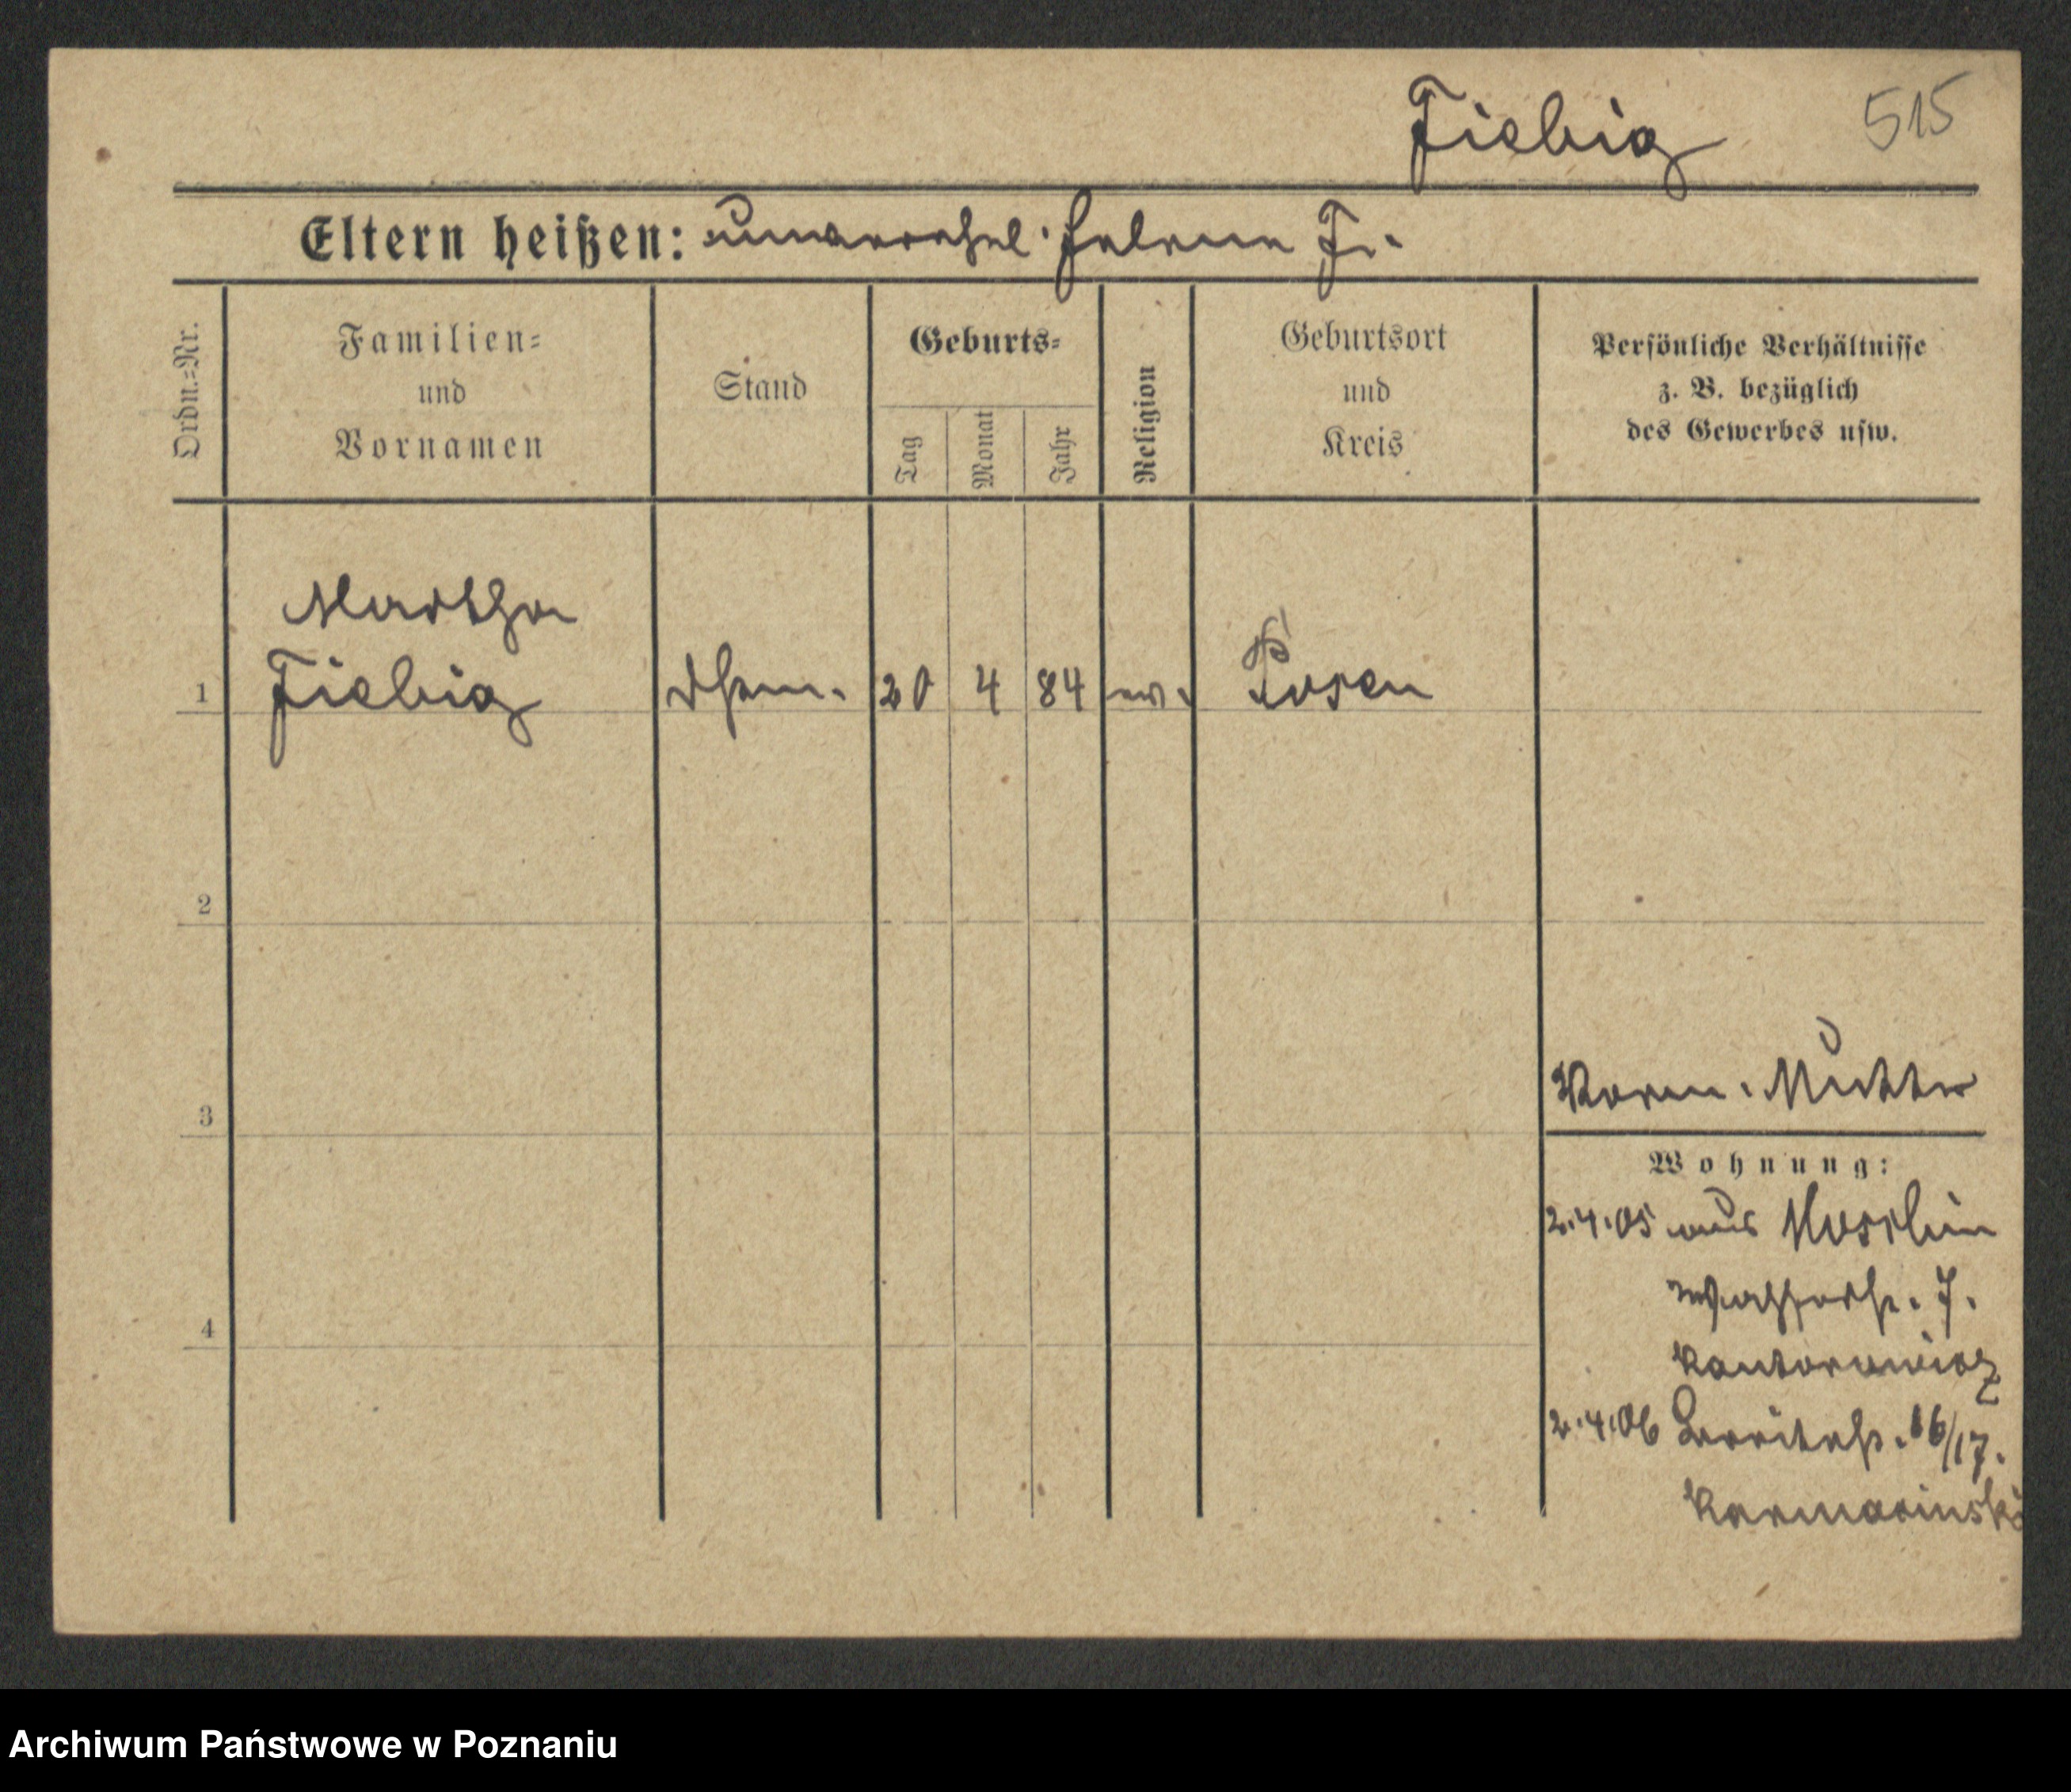 Fiebig 515
Eltern heißen: unverehel. Helene F.
Ordn.=Nr.
Familien=
und
Vornamen
Stand
Geburts=
Tag
Monat
Jahr
Religion
Geburtsort
und
Kreis
Persönliche Verhältnisse
z. B. bezüglich
des Gewerbes usw.
Martha
1 Fiebig 20 4 84 ev. Posen
2
3
Vorm. Mutter
Wohnung:
2.4.05 aus Koschlin
Wasserstr. 7.
Kantorowicz
4
2.4.06 Breitestr. 16/17.
Karmainski
Archiwum Państwowe w Poznaniu